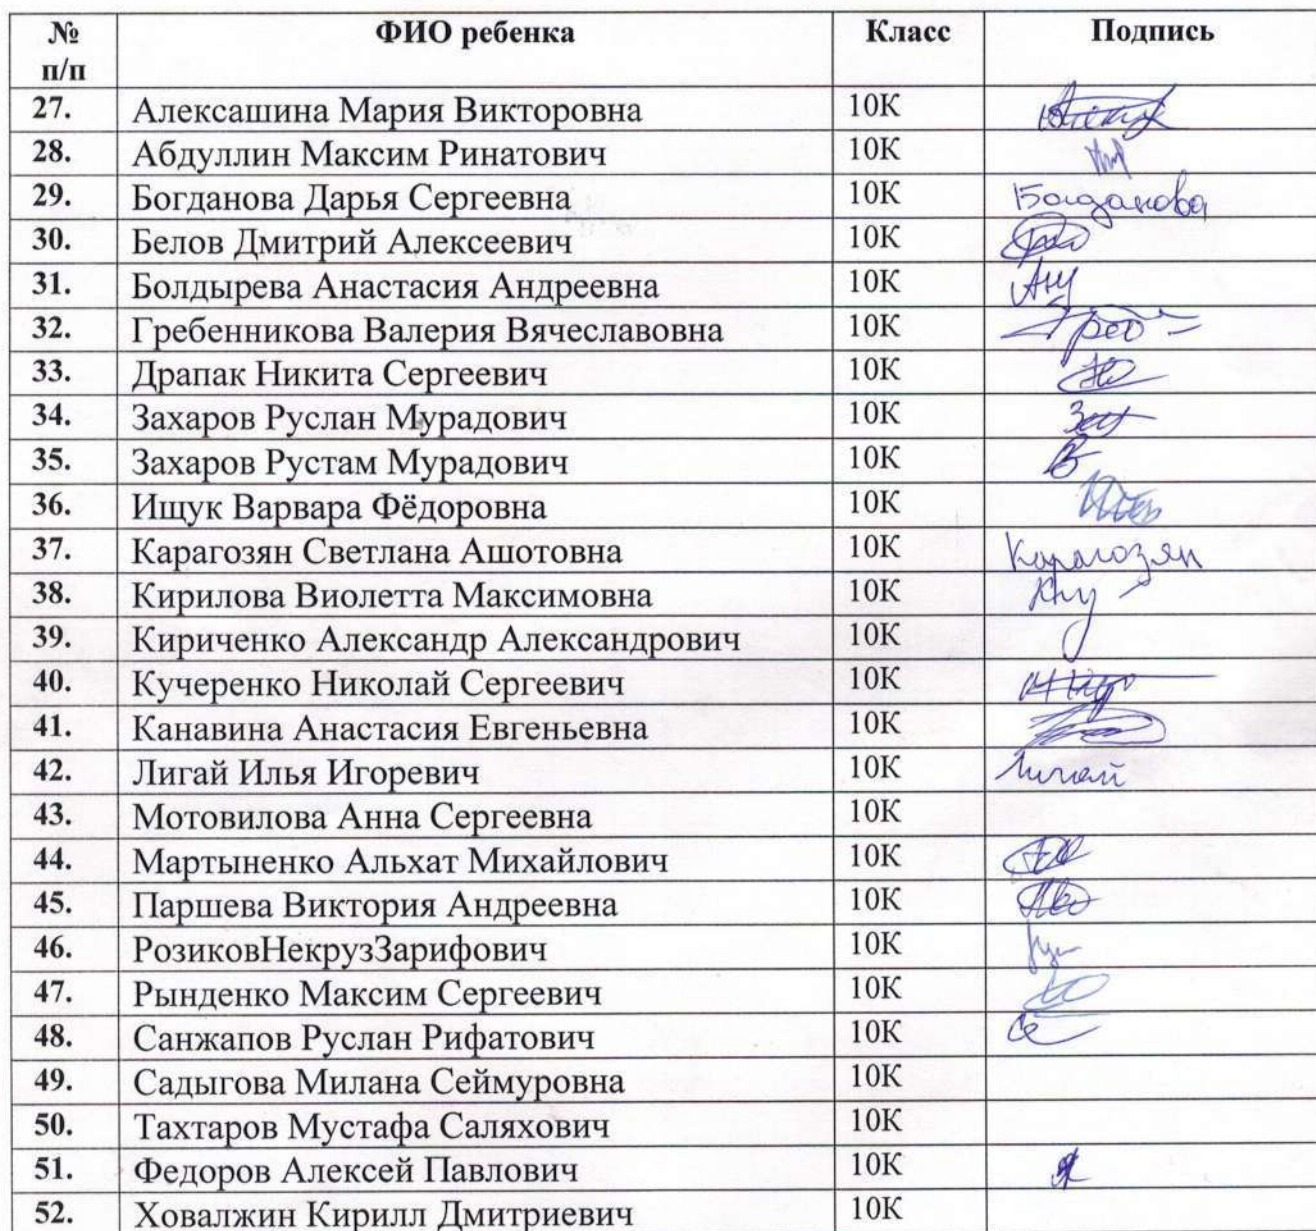 № п/п ФИО ребенка Класс Подпись
27. Алексашина Мария Викторовна 10К
28. Абдуллин Максим Ринатович 10К
29. Богданова Дарья Сергеевна 10К Богданова
30. Белов Дмитрий Алексеевич 10К
31. Болдырева Анастасия Андреевна 10К
32. Гребенникова Валерия Вячеславовна 10К Греб
33. Драпак Никита Сергеевич 10К
34. Захаров Руслан Мурадович 10К
35. Захаров Рустам Мурадович 10К
36. Ищук Варвара Фёдоровна 10К
37. Карагозян Светлана Ашотовна 10К Карагозян
38. Кирилова Виолетта Максимовна 10К
39. Кириченко Александр Александрович 10К
40. Кучеренко Николай Сергеевич 10К
41. Канавина Анастасия Евгеньевна 10К
42. Лигай Илья Игоревич 10К Лигай
43. Мотовилова Анна Сергеевна 10К
44. Мартыненко Альхат Михайлович 10К
45. Паршева Виктория Андреевна 10К
46. РозиковНекрузЗарифович 10К
47. Рынденко Максим Сергеевич 10К
48. Санжапов Руслан Рифатович 10К
49. Садыгова Милана Сеймуровна 10К
50. Тахтаров Мустафа Саляхович 10К
51. Федоров Алексей Павлович 10К
52. Ховалжин Кирилл Дмитриевич 10К